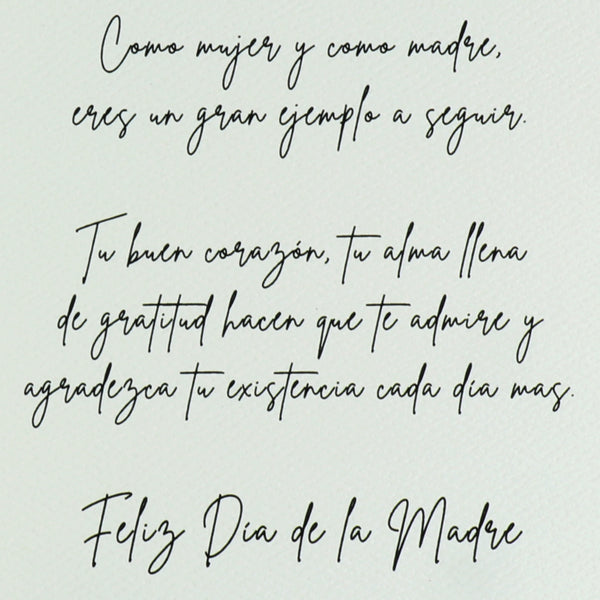 Como mujer y como madre,
eres un gran ejemplo a seguir.
Tu buen corazón, tu alma llena
de gratitud hacen que te admire y
agradezca tu existencia cada día mas.
Feliz Día de la Madre